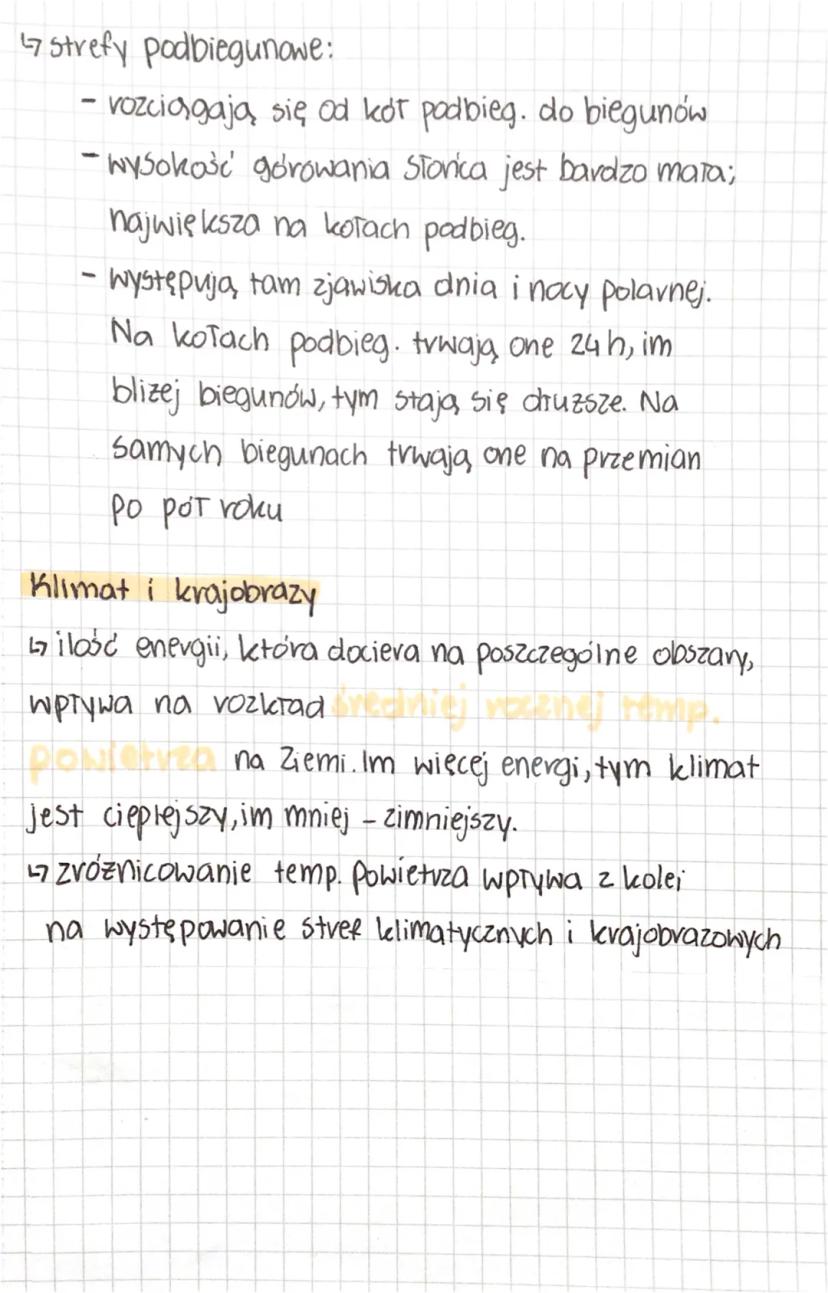 ↳ strefy podbiegunowe:
- rozciągają się od kół podbieg. do biegunów
- wysokość górowania Słońca jest bardzo mała;
największa na kołach podbieg.
- występują tam zjawiska dnia i nocy polarnej.
Na kołach podbieg. trwają one 24 h, im
bliżej biegunów, tym stają się dłuższe. Na
samych biegunach trwają one na przemian
po pół roku
Klimat i krajobrazy
↳ ilość energii, która dociera na poszczególne obszary,
wpływa na rozkład średniej rocznej temp.
powietrza na Ziemi. Im więcej energi, tym klimat
jest cieplejszy, im mniej - zimniejszy.
↳ zróżnicowanie temp. powietrza wpływa z kolei
na występowanie stref klimatycznych i krajobrazowych